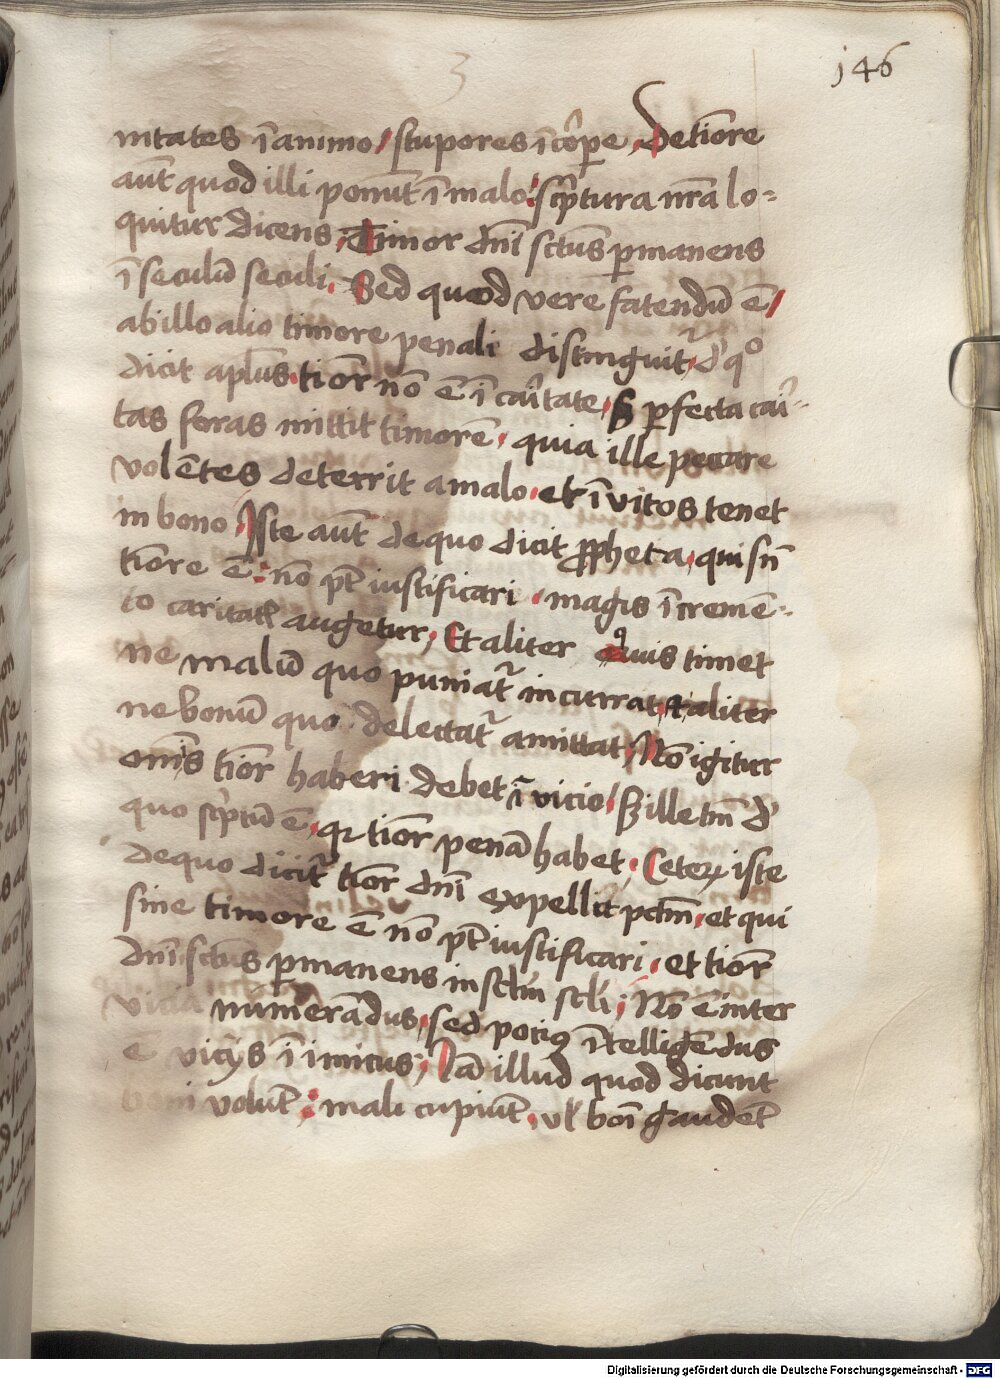 3
146
nitates ī animo / stupores ī cor̄pe . De tīore
aūt quod illi ponūt ī malo : scp̄tura nr̄a lo=
quitur dicens . Timor dn̄i sctūs p̄manens
ī seculū seculi . Sed quod vere fatendū ē /
ab illo alio timore penali distinguit᷑ . d' qº
dicit aplūs . tiōr nō ē ī car̄itate . S; p̄fecta car̄i-
tas foras mittit timorē . quia ille peccare
volētes deterrit a malo . et īvitos tenet
in bono . Iste aūt de quo dicit ꝓpheta . qui sn̄
tīore ē : nō pt̄ iustificari . magis ī cremē-
to caritatꝭ augetur . Et aliter quis timet
ne malū quo puniat᷑ incurrat . & aliter
ne bonū quo delectat᷑ amittat ; Nō igitur
om̄is tiōr haberi debet ī vicio / S; ille tm̄ d'
quo scp̄tū ē . qꝛ tiōr penā habet . Ceterꝝ iste
de quo dicit᷑ tiōr dn̄i expellit pctm̄ . et qui
sine timore ē nō pt̄ iustificari . et tiōr
dn̄i sctūs p̄manens in sclm̄ scli ; Nō ē inter
vicia numerādus . sed potiꝰ ītelligēdus
ē vicijs īimicus ; Iā illud quod dicunt
boni volūt : mali cupiūt . vl' boī gaudēt
Digitalisierung gefördert durch die Deutsche Forschungsgemeinschaft - DFG